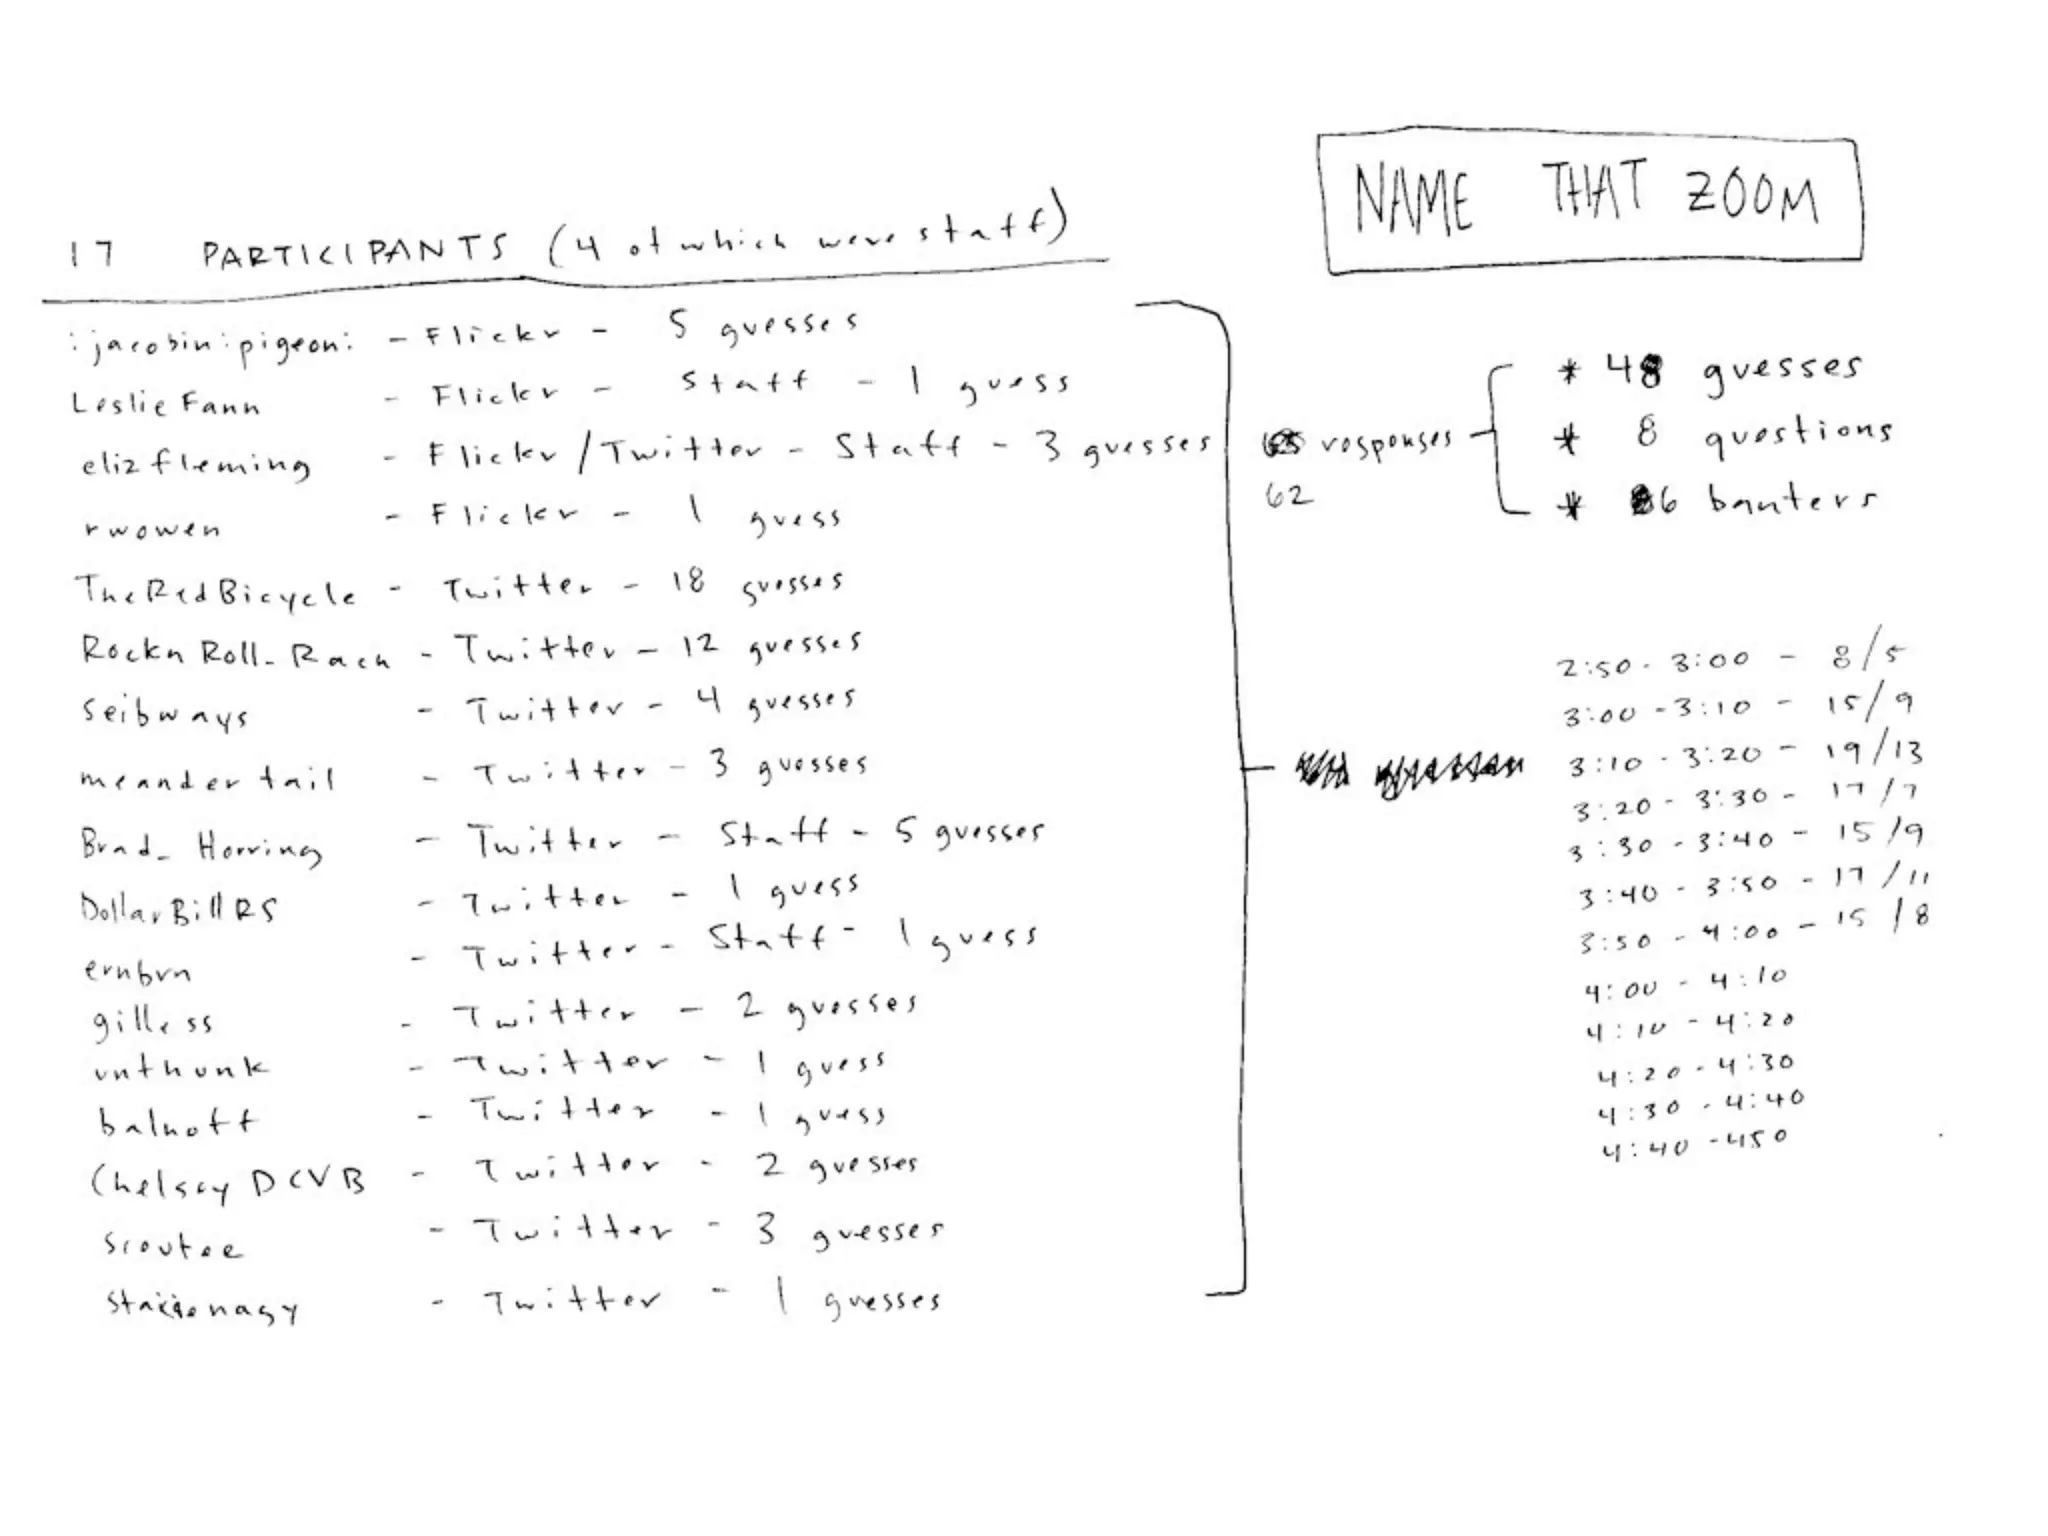 NAME THAT ZOOM
17 PARTICIPANTS (4 of which were staff)
:jacobin:pigeon: - Flickr - 5 guesses
Leslie Fann - Flickr - Staff - 1 guess
elizfleming - Flickr/Twitter - Staff - 3 guesses
rwowen - Flickr - 1 guess
TheRedBicycle - Twitter - 18 guesses
RocknRoll_Rach - Twitter - 12 guesses
seibways - Twitter - 4 guesses
meandertail - Twitter - 3 guesses
Brad_Herring - Twitter - Staff - 5 guesses
DollarBillRS - Twitter - 1 guess
ernbrn - Twitter - Staff - 1 guess
gilless - Twitter - 2 guesses
unthunk - Twitter - 1 guess
balnoff - Twitter - 1 guess
ChelseyDCVB - Twitter - 2 guesses
scoutee - Twitter - 3 guesses
- Twitter - 1 guesses
responses
62
* 48 guesses
* 8 questions
* 6 banters
2:50 - 3:00 - 8/5
3:00 - 3:10 - 15/9
3:10 - 3:20 - 19/13
3:20 - 3:30 - 17/7
3:30 - 3:40 - 15/9
3:40 - 3:50 - 17/11
3:50 - 4:00 - 15/8
4:00 - 4:10
4:10 - 4:20
4:20 - 4:30
4:30 - 4:40
4:40 - 450